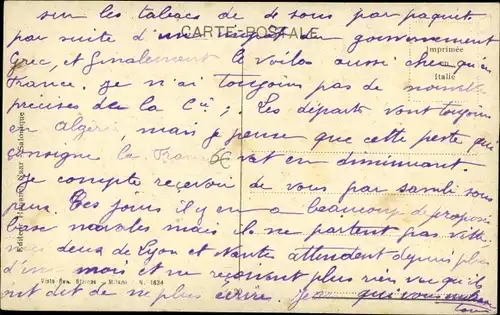 sur les tabacs de de sous par paquets
CARTE POSTALE
par suite d'un impôt du gouvernement
Imprimée
Italie
Grec, et finalement le voilà aussi cher qu'en
France. Je n'ai toujours pas de nouvelles
précises de la Cie ; Les départs vont toujours
en Algérie, mais je pense que cette perte qui
consigne la France va en diminuant.
6€
Je compte recevoir de vous par samedi sous
peu. Ces jours il y en a beaucoup de proposés
base navales mais ils ne partent pas vite,
deux de Lyon et Nantes attendent depuis plus
d'un mois et ne reçoivent plus rien vu qu'ils
ont dit de ne plus écrire. Je qui vous
tous
Salonique
Vista Rev. Milano N. 1634